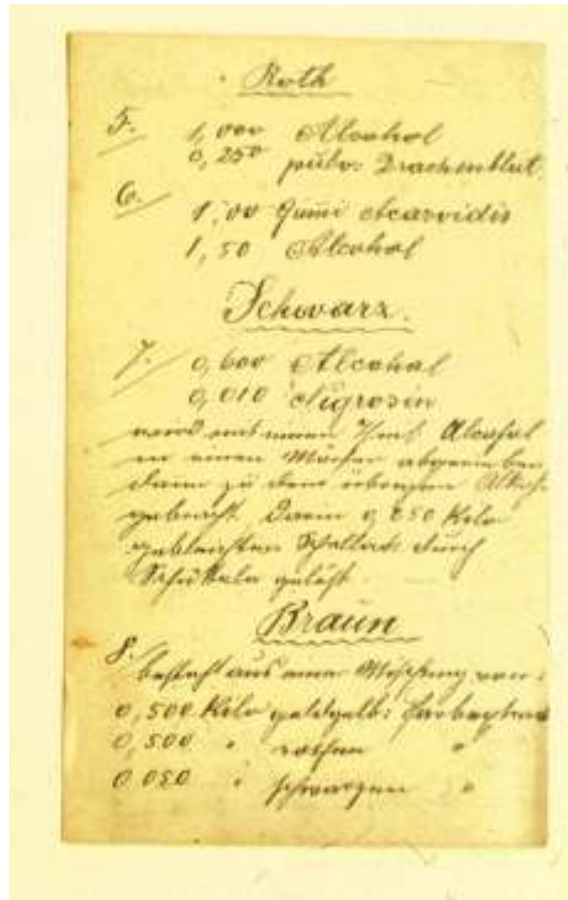 Roth
5. 1,000 Alcohol
0,250 pulv: Drachenblut.
6. 1,00 Gum̄i Acaroidis
1,50 Alcohol
Schwarz.
7. 0,600 Alcohol
0,010 Nigrosin
wird mit einen Alcohol
in einen Mörser abgerieben
dann zu dem übrigen
gebracht. Darin 0,250 Kilo
gebleichten Schellack durch
Schütteln gelöst.
Braun
8. besteht aus einer Mischung von:
0,500 Kilo goldgelb:
0,500 " rothen "
0,050 " schwarzen "